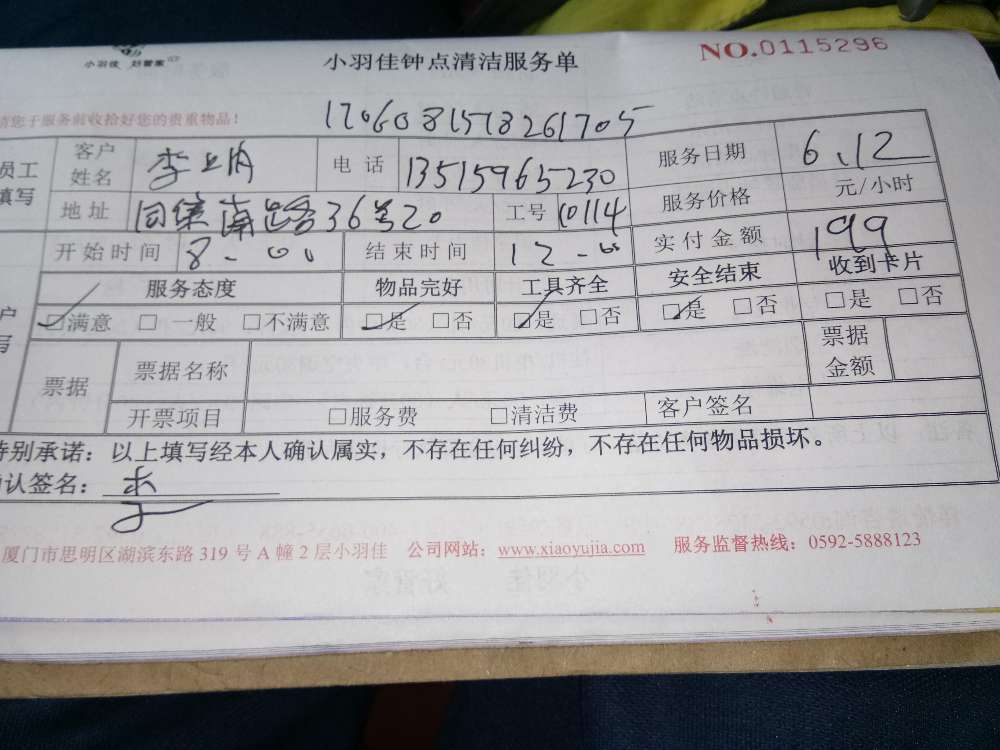 小羽佳 好管家
小羽佳钟点清洁服务单
NO.0115296
请您于服务前收拾好您的贵重物品!
12060815718261705
员工填写 客户姓名 李 电话 13515965230 服务日期 6.12
地址 同集南路36号20 工号 10114 服务价格 元/小时
开始时间 8-00 结束时间 12-00 实付金额 199
服务态度 物品完好 工具齐全 安全结束 收到卡片
□满意 □一般 □不满意 □是 □否 □是 □否 □是 □否 □是 □否
票据 票据名称 票据金额
开票项目 □服务费 □清洁费 客户签名
特别承诺:以上填写经本人确认属实,不存在任何纠纷,不存在任何物品损坏。
确认签名:李
厦门市思明区湖滨东路 319 号 A 幢 2 层小羽佳 公司网站:www.xiaoyujia.com 服务监督热线:0592-5888123